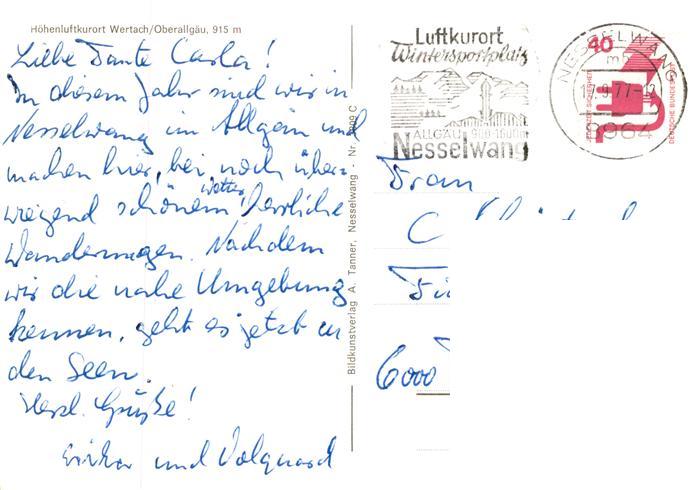 Höhenluftkurort Wertach/Oberallgäu, 915 m
Liebe Tante Carla!
In diesem Jahr sind wir in
Nesselwang im Allgäu und
machen hier, bei noch über-
wiegend schönem Wetter herrliche
Wanderungen. Nachdem
wir die nahe Umgebung
kennen, geht es jetzt an
den Seen.
Herzl. Grüße!
und Volquard
Bildkunstverlag A. Tanner, Nesselwang - Nr. C
Luftkurort
Wintersportplatz
ALLGÄU 900-1600m
Nesselwang
NESSELWANG
mb
.9.77-12
8964
40
DEUTSCHE BUNDESPOST
Frau
C
6000